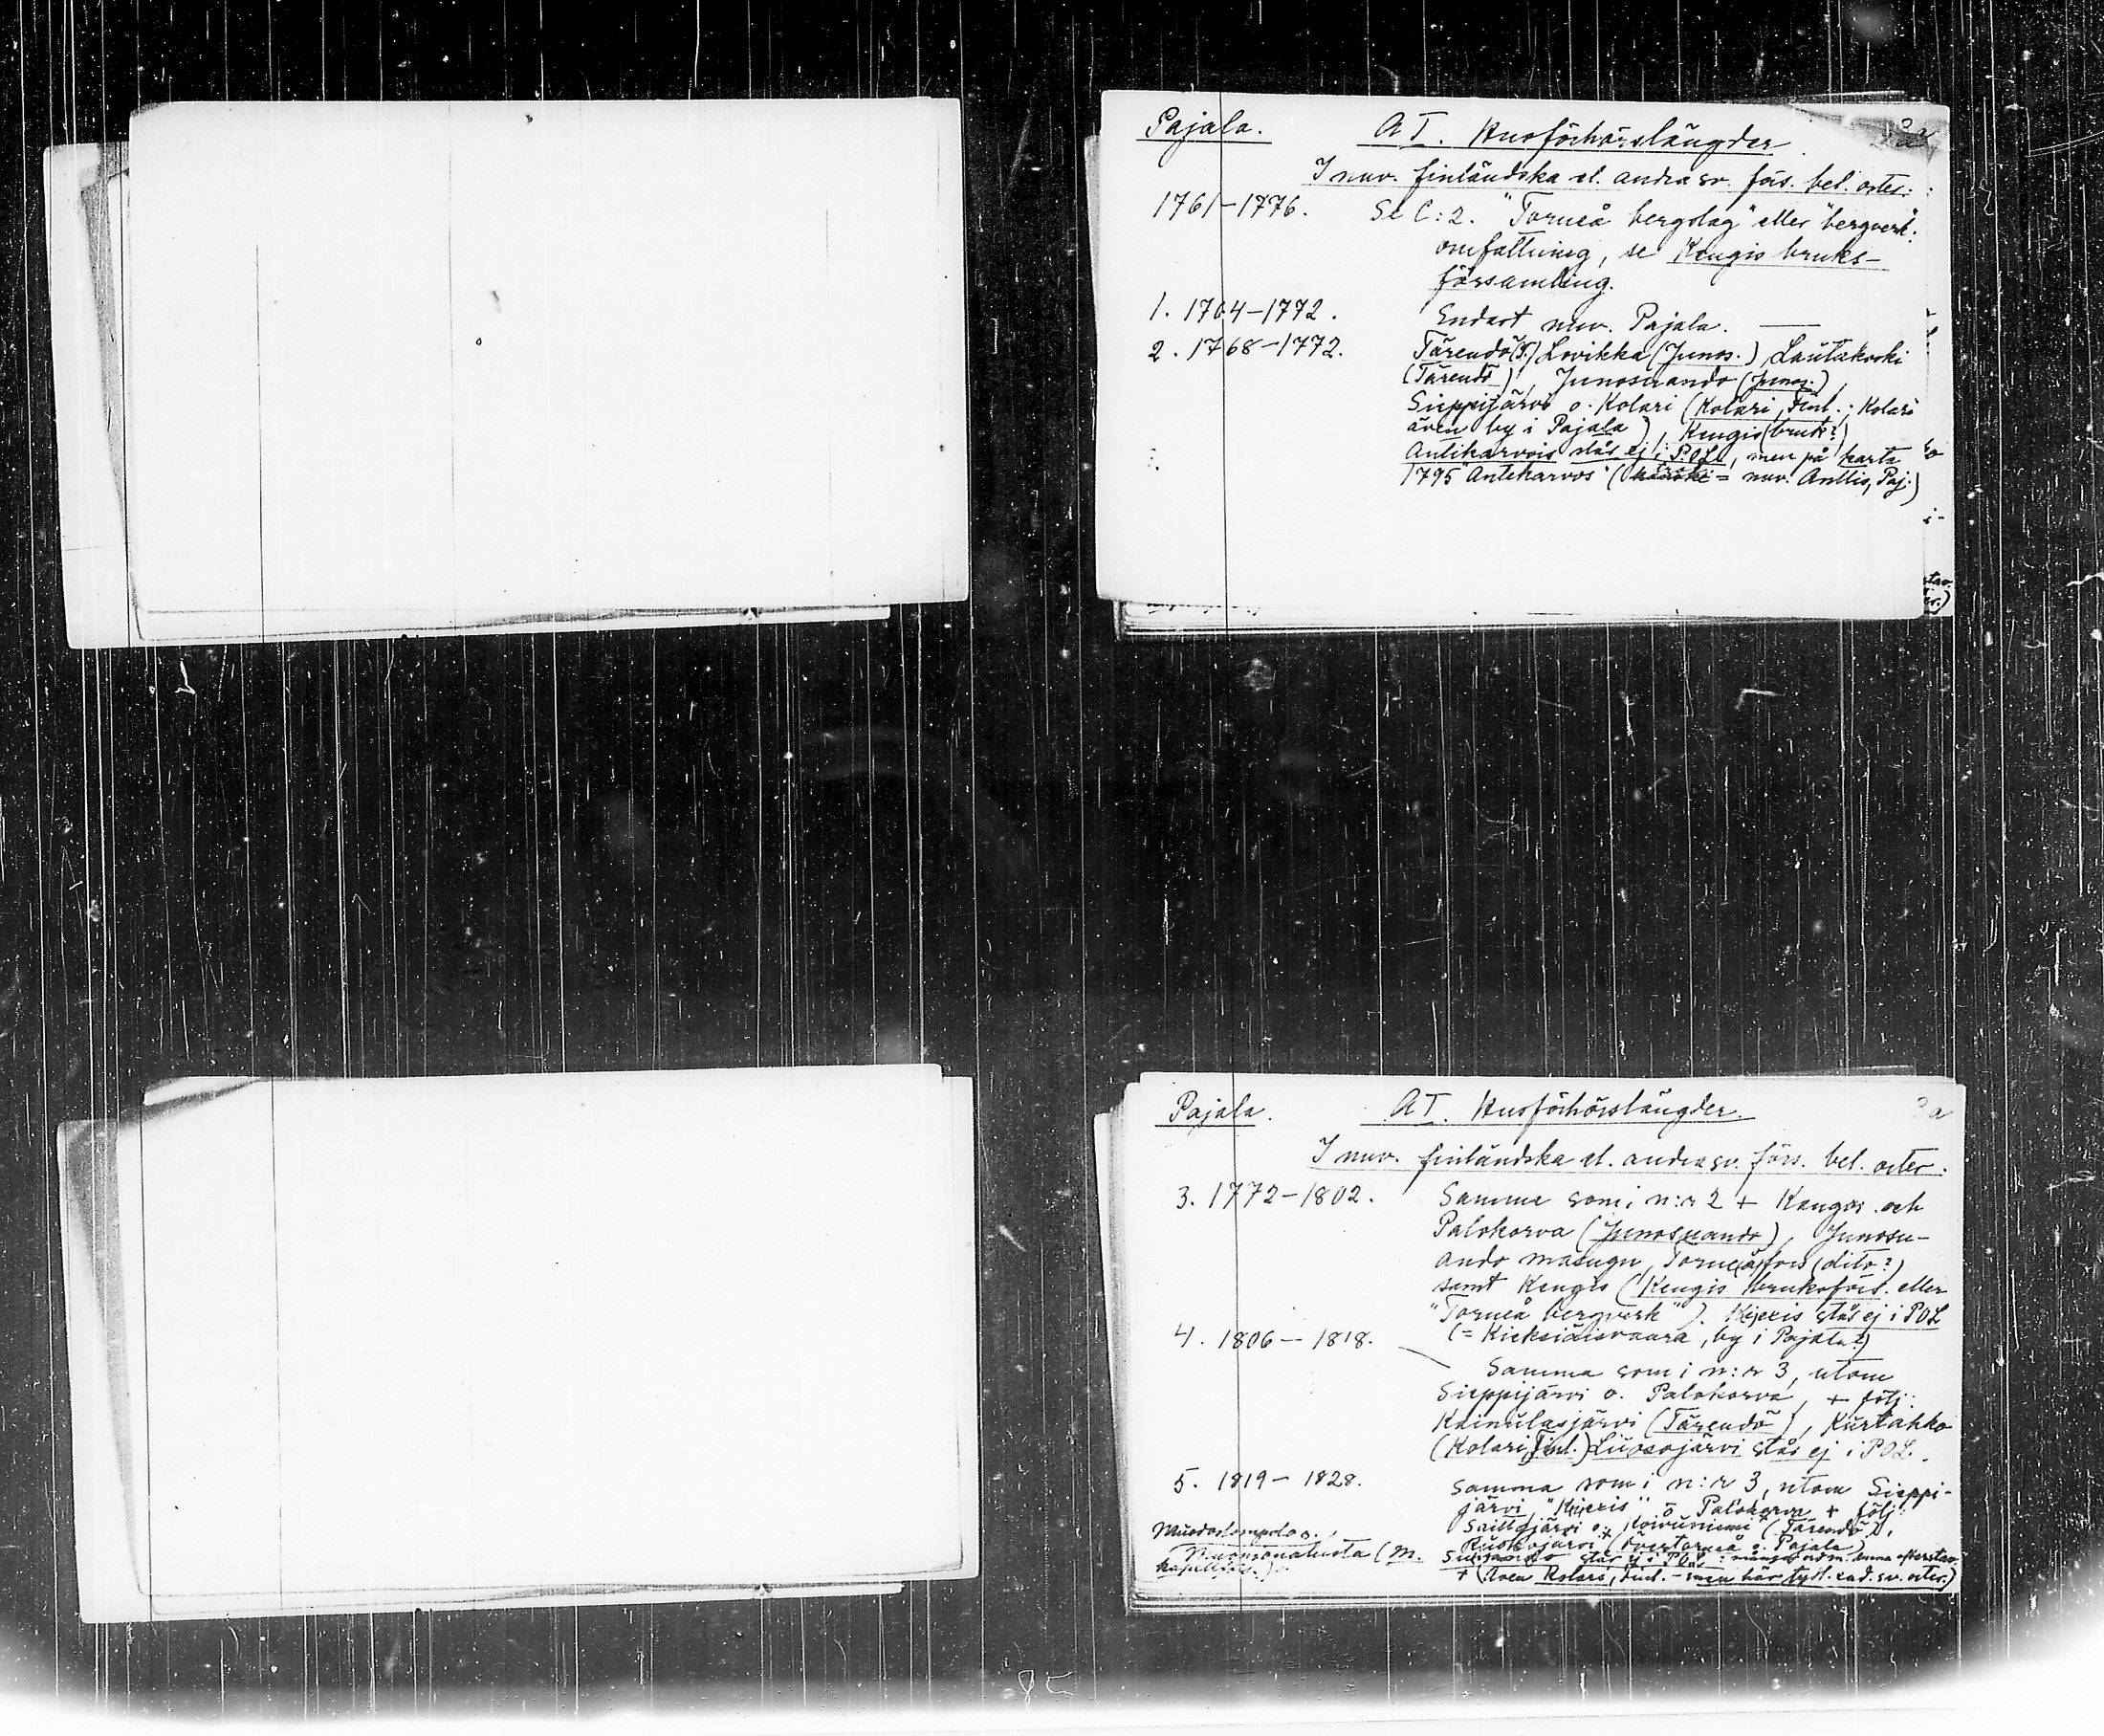 Pajala. A I. Husförhörslängder 2a
I nuv. finländska el. andra sv. förs. bel. orter:
1761-1776. Se C:2. "Torneå bergslag" eller "bergverk":
omfattning, se Kengis bruks-
församling.
1. 1764-1772. Endast nuv. Pajala.
2. 1768-1772. Tärendö (T.) Lovikka (Junos.), Lautakoski
(Tärendö), Junosuando (Junos.),
Sieppijärvi o. Kolari (Kolari, Finl.; Kolari
även by i Pajala), Kengis (bruk?)
Antiharvois står ej i POL, men på karta
1795 "Anteharvos" ( = nuv. Anttis, Paj.)
Pajala. A I. Husförhörslängder. 3a
I nuv. finländska el. andra sv. förs. bel. orter:
3. 1772-1802. Samma som i n:r 2 + Kangos och
Palokorva (Junosuando), Junosu-
ando masugn, Torneåfors (dito?)
samt Kengis (Kengis bruksförs. eller
"Torneå bergverk"). Kiexis står ej i POL
(= Kieksiäisvaara, by i Pajala?)
4. 1806-1818.
Samma som i n:r 3, utom
Sieppijärvi o. Palokorva, + följ:
Kainulasjärvi (Tärendö), Kurtakko
(Kolari, Finl.) Liusojärvi står ej i POL.
5. 1819-1828. Samma som i n:r 3, utom Sieppi-
järvi, "Kiexis" o. Palokorva + följ:
Saittajärvi o. Koivuniemi (Tärendö),
Muodoslompolo o.
Muonionalusta (M.
kapellförs.)
(Övertorneå o. Pajala)
står ej i POL
+ (Även Kolari, Finl. - men här tydl. end. sv. orter.)